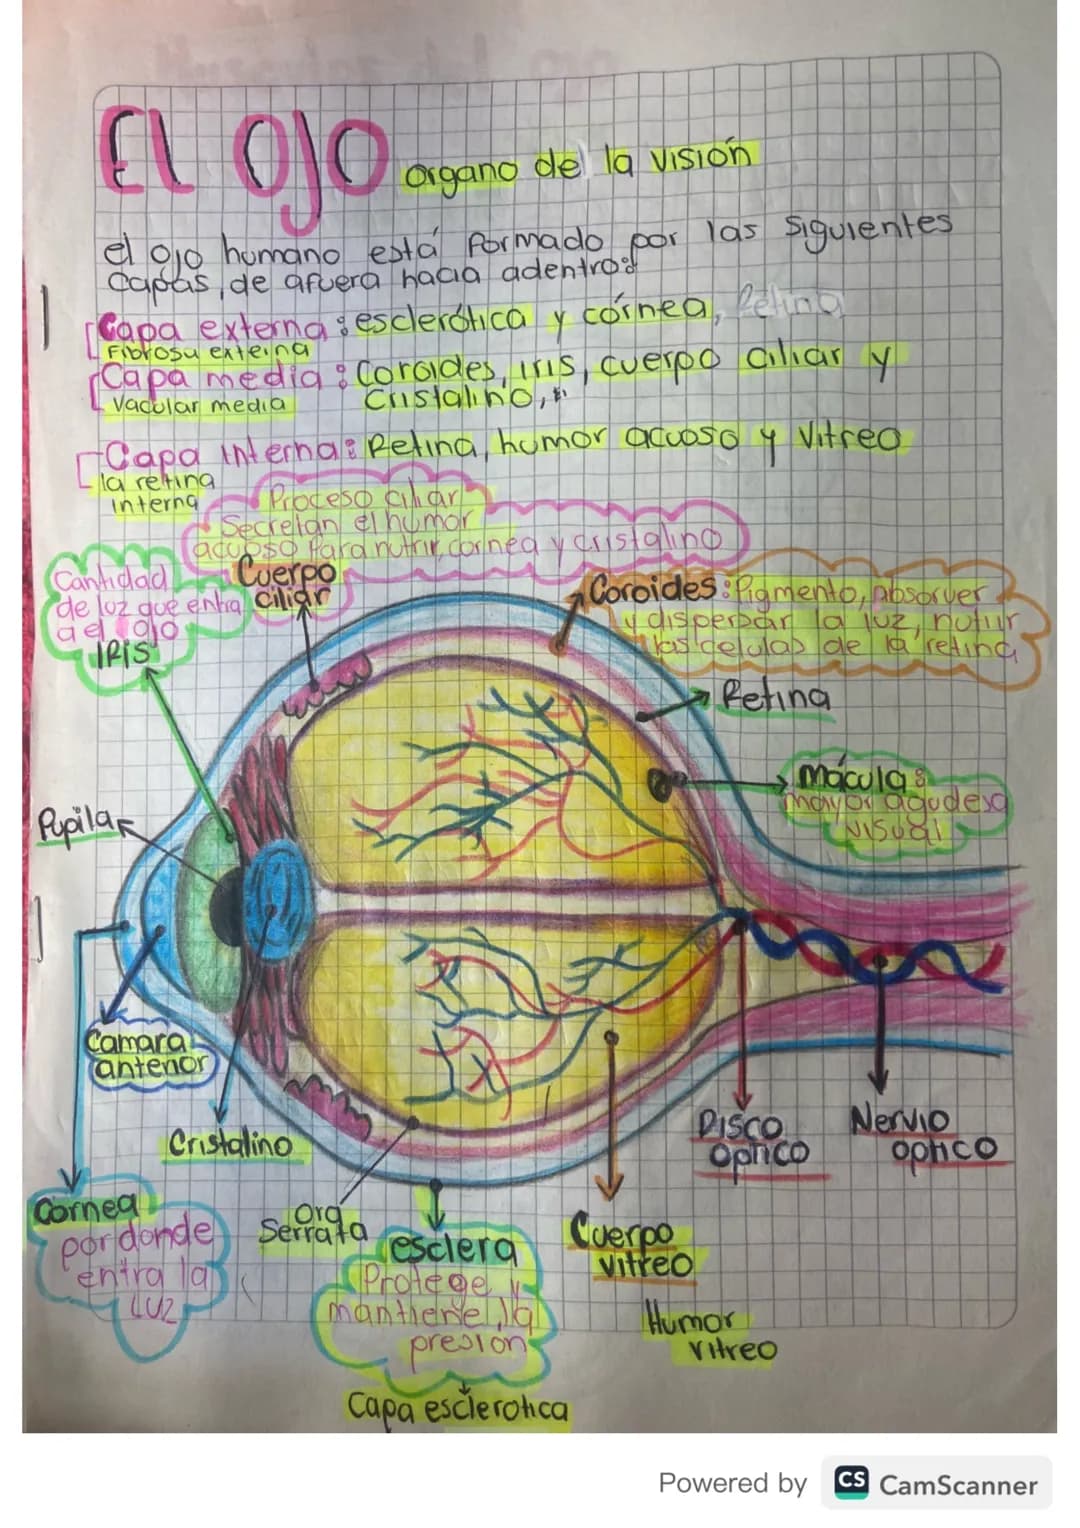 El OJO organo de la visión
el ojo humano está formado por las siguientes
capas, de afuera hacia adentro:
Capa externa: esclerótica y córnea, Retina
Fibrosa externa
Capa media: Coroides, iris, cuerpo ciliar y
Vacular media cristalino,
Capa interna: Retina, humor acuoso y Vitreo
la retina
interna
Proceso ciliar
Secretan el humor
acuoso para nutrir cornea y cristalino
Cuerpo
ciliar
Cantidad
de luz que entra
a el ojo
IRIS
Coroides: Pigmento, absorver
y dispersar la luz, nutrir
las celulas de la retina
Retina
Mácula:
mayor agudesa
visual
Pupila
Camara
anterior
Cristalino
Cornea
por donde
entra la
LUZ
ora
Serrata
esclera
Protege y
mantiene la
presion
Capa esclerotica
Cuerpo
vitreo
Humor
vitreo
Disco
Optico
Nervio
optico
Powered by CS CamScanner